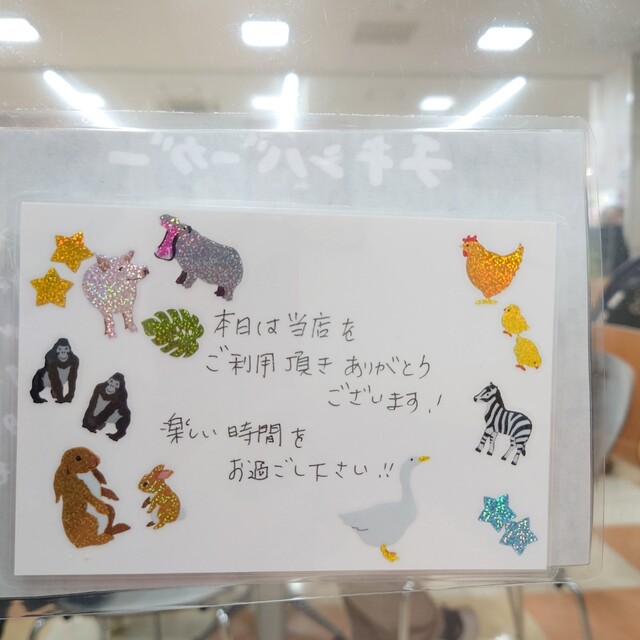 チキンバーガー
本日は当店を
ご利用頂きありがとう
ございます!
楽しい時間を
お過ごし下さい!!